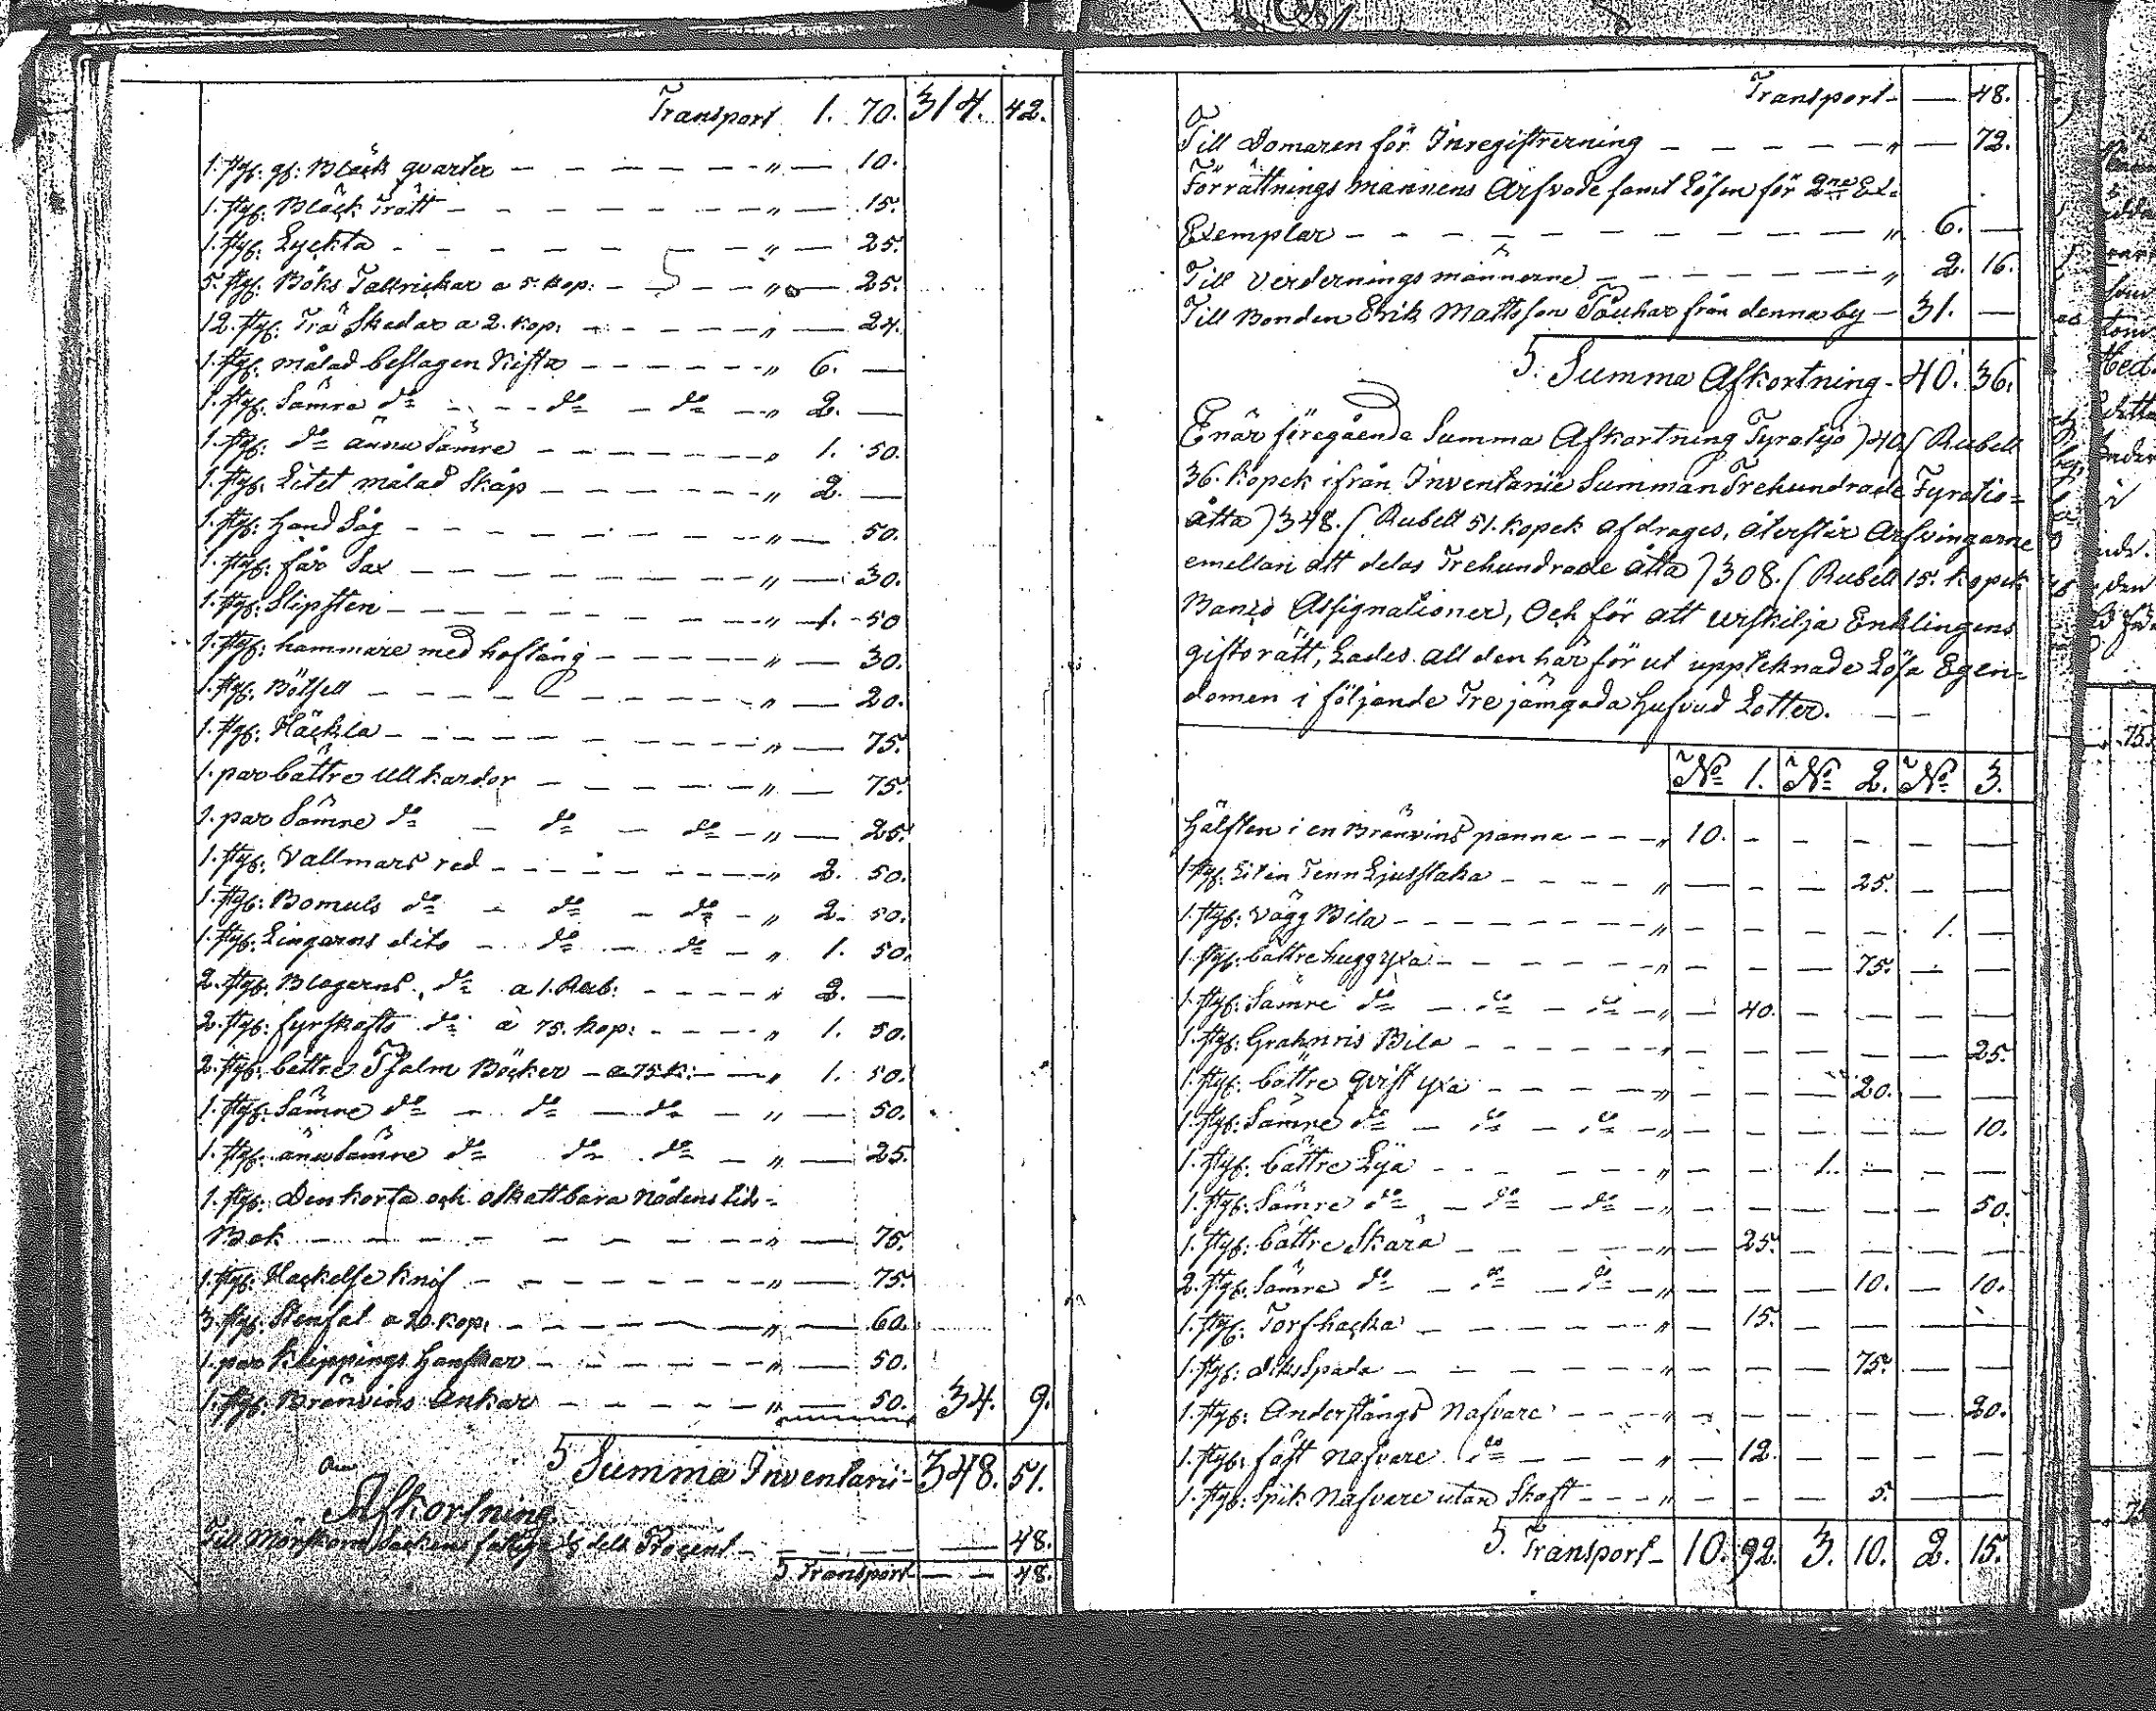 Transport 1. 70. 314. 42.
1. styk: gl: Bläck qvarter — " — 10.
1. styk: Bläck Tratt — " — 15.
1. styk: Lyckta — " — 25.
5. styk: Böks Tallrickar a 5. kop: — " — 25.
12. styk: Trä Skedar a 2. kop: — " — 24.
1. styk: målad beslagen Kista — " 6. —
1. styk: Sämre do — do — do — " 2. —
1. styk: do ännu Sämre — " 1. 50.
1. styk: Litet målad Skåp — " 2. —
1. styk: hand Såg — " — 50.
1. styk: får Sax — " — 30.
1. styk: Slipsten — " 1. 50
1. styk: hammare med hoftång — " — 30.
1. styk: Bötsell — " — 20.
1. styk: Häckla — " — 75.
1. par bättre Ull kardor — " — 75.
1. par Sämre do — do — do — " — 25.
1. styk: Vallmars red — " 2. 50.
1. styk: Bomuls do — do — do — " 2. 50.
1. styk: Lingarns dito — do — do — " 1. 50.
2. styk: Blagarns do a 1. Rub: — " 2. —
2. styk: fyrskafts do à 75. kop: — " 1. 50.
2. styk: bättre Psalm Böcker — a 75 k: — " 1. 50.
1. styk: Sämre do — do — do — " — 50.
1. styk: änu Sämre do do do — " — 25.
1. styk: Den korta och oskattbara Nådens tids-
Bok — " — 75.
1. styk: Hackelse knif — " — 75.
3. styk: Stenfat a 20. kop: — " — 60.
1. par Klippings Hanskar — " — 50.
1. styk: Bränvins Ankar — " — 50. 34. 9.
S Summa Inventarii - 348. 51.
Afkortning
Till Mörskom Sockens fattige 1/8 dels Procent — — 48.
S Transport — — 48.
Transport — — 48.
Till Domaren för Inregistrering — " — 72.
Förrättnings mannens Arfvode samt Lösen för 2ne Ex-
Exemplar — " 6. —
Till Värdernings männerne — " 2. 16.
Till Bonden Erik Mattsson från denna by — 31. —
S. Summa Afkortning - 40. 36.
Enär föregående Summa Afkortning Fyratijo )40( Rubell
36. kopek ifrån Inventarii Summan Trehundrade Fyratio-
åtta )348.( Rubell 51. kopek afdrages, återstår Arfvingarne
emellan att delas Trehundrade åtta )308.( Rubell 15. kopek
Banco Assignationer, Och för att urskilja Enklingens
giftorätt, Lades all den här för ut uppteknade Lösa Egen-
domen i följande Tre jämgoda Hufvud Lotter. — —
No 1. No 2. No 3.
Hälften i en Bränvins panna — " 10. — — — — —
1 styk: Liten Tenn Ljusstaka — " — — — 25. — —
1. styk: Vägg Bila — " — — — — 1. —
1. styk: bättre hugg yxa — " — — — 75. — —
1. styk: Sämre do — do — do — " — 40. — — — —
1. styk: Grahnris Bila — " — — — — — 25.
1. styk: bättre qvist yxa — " — — — 20. — —
1. styk: Sämre do — do — do — " — — — — — 10.
1. styk: bättre Lija — " — — 1. — — —
1. styk: Sämre do — do — do — " — — — — — 50.
1. styk: bättre Skära — " — 25. — — — —
2. styk: Sämre do — do — do — " — — — 10. — 10.
1. styk: Torfhacka — " — 15. — — — —
1. styk: dikes Spada — " — — — 75. — —
1. styk: Anderstångs Nafvare — " — — — — — 20.
1. styk: fätt Nafvare do — " — 12. — — — —
1. styk: Spik Nafvare utan Skaft — " — — — 5. — —
S. Transport — 10. 92. 3. 10. 2. 15.